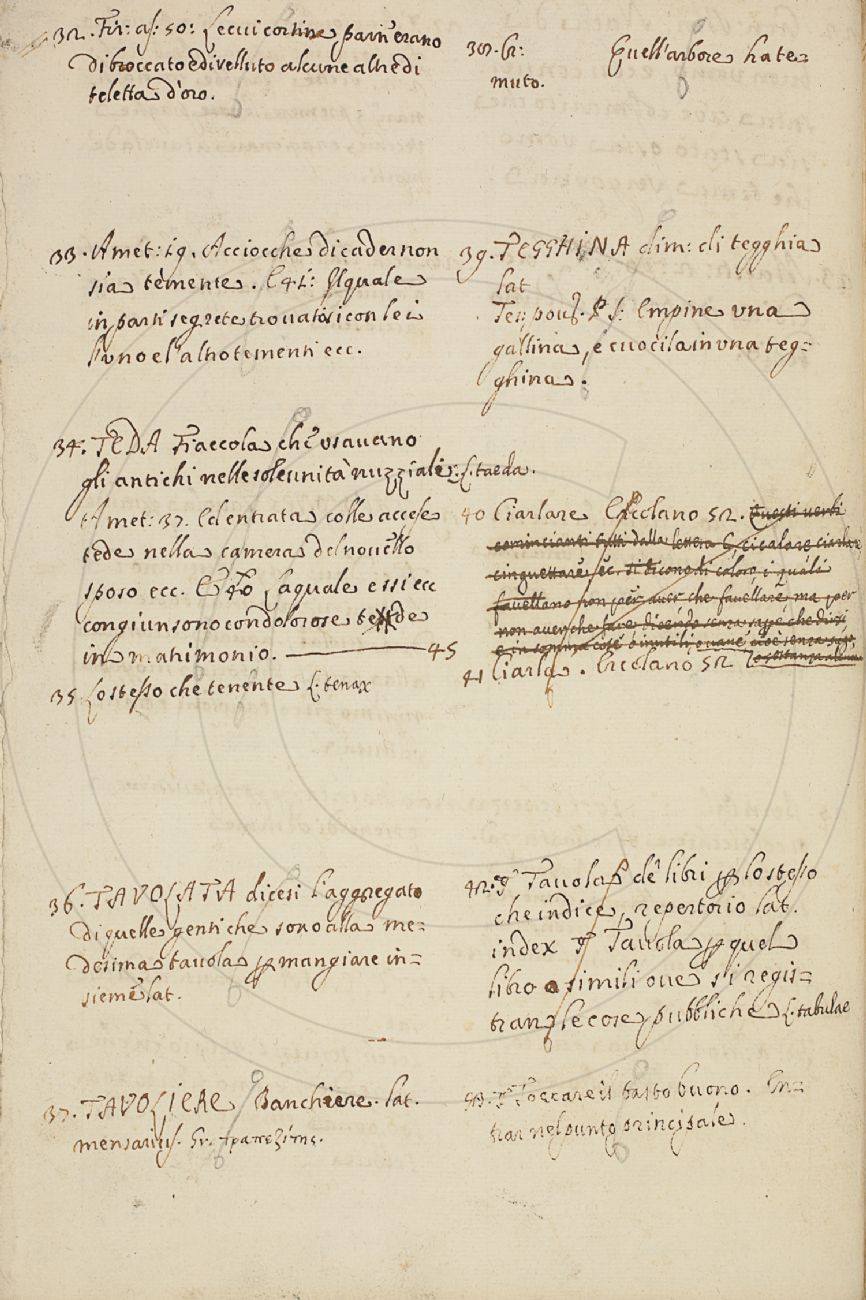 32. Fir: as: 50: Le cui cortine parti erano
di broccato e di velluto alcune altre di
teletta d'oro.
33. Amet: 19. Acciocche di cader non
sia temente. E 41: Il quale
in parti segrete trovatosi con lei
l'uno e l'altro tementi ecc.
34. TEDA Fiaccola che usavano
gli antichi nelle solennità nuzziali: L. taeda.
Amet: 37. Ed entrata colle accese
tede nella camera del novello
sposo ecc. E 40 La quale essi ecc
congiunsono con dolorose tede
in matrimonio. 45
35. Lo stesso che tenente L. tenax
36. TAVOLATA dicesi l'aggregato
di quelle genti che sono alla me=
desima tavola per mangiare in=
sieme lat.
37. TAVOLIERE Banchiere. lat.
mensarius. Gr. τραπεζίτης.
38. Gr: Quell'arbore ha te=
muto.
39. TEGGHINA dim: di tegghia
lat
Tes: pov: P. S: Empine una
gallina, e cuocila in una teg=
ghina.
40 Ciarlare Ercolano 52. Questi verbi
comincianti tutti dalla lettera C, cicalare ciarlare
cinguettare ec. si dicono di coloro, i quali
favellano non per aver che favellare ma per
non aver che fare dicendo senza saper che dirsi
e in somma cose o inutili, o vane, cioè senza sugo
o sostanza alcuna
41 Ciarla. Ercolano 52
42. Tavola de' libri per lo stesso
che indice, repertorio lat.
index Tavola per quel
libro o simili ove si regis=
tran le cose pubbliche L. tabulae
43. Toccare il tasto buono. En=
trar nel punto principale.